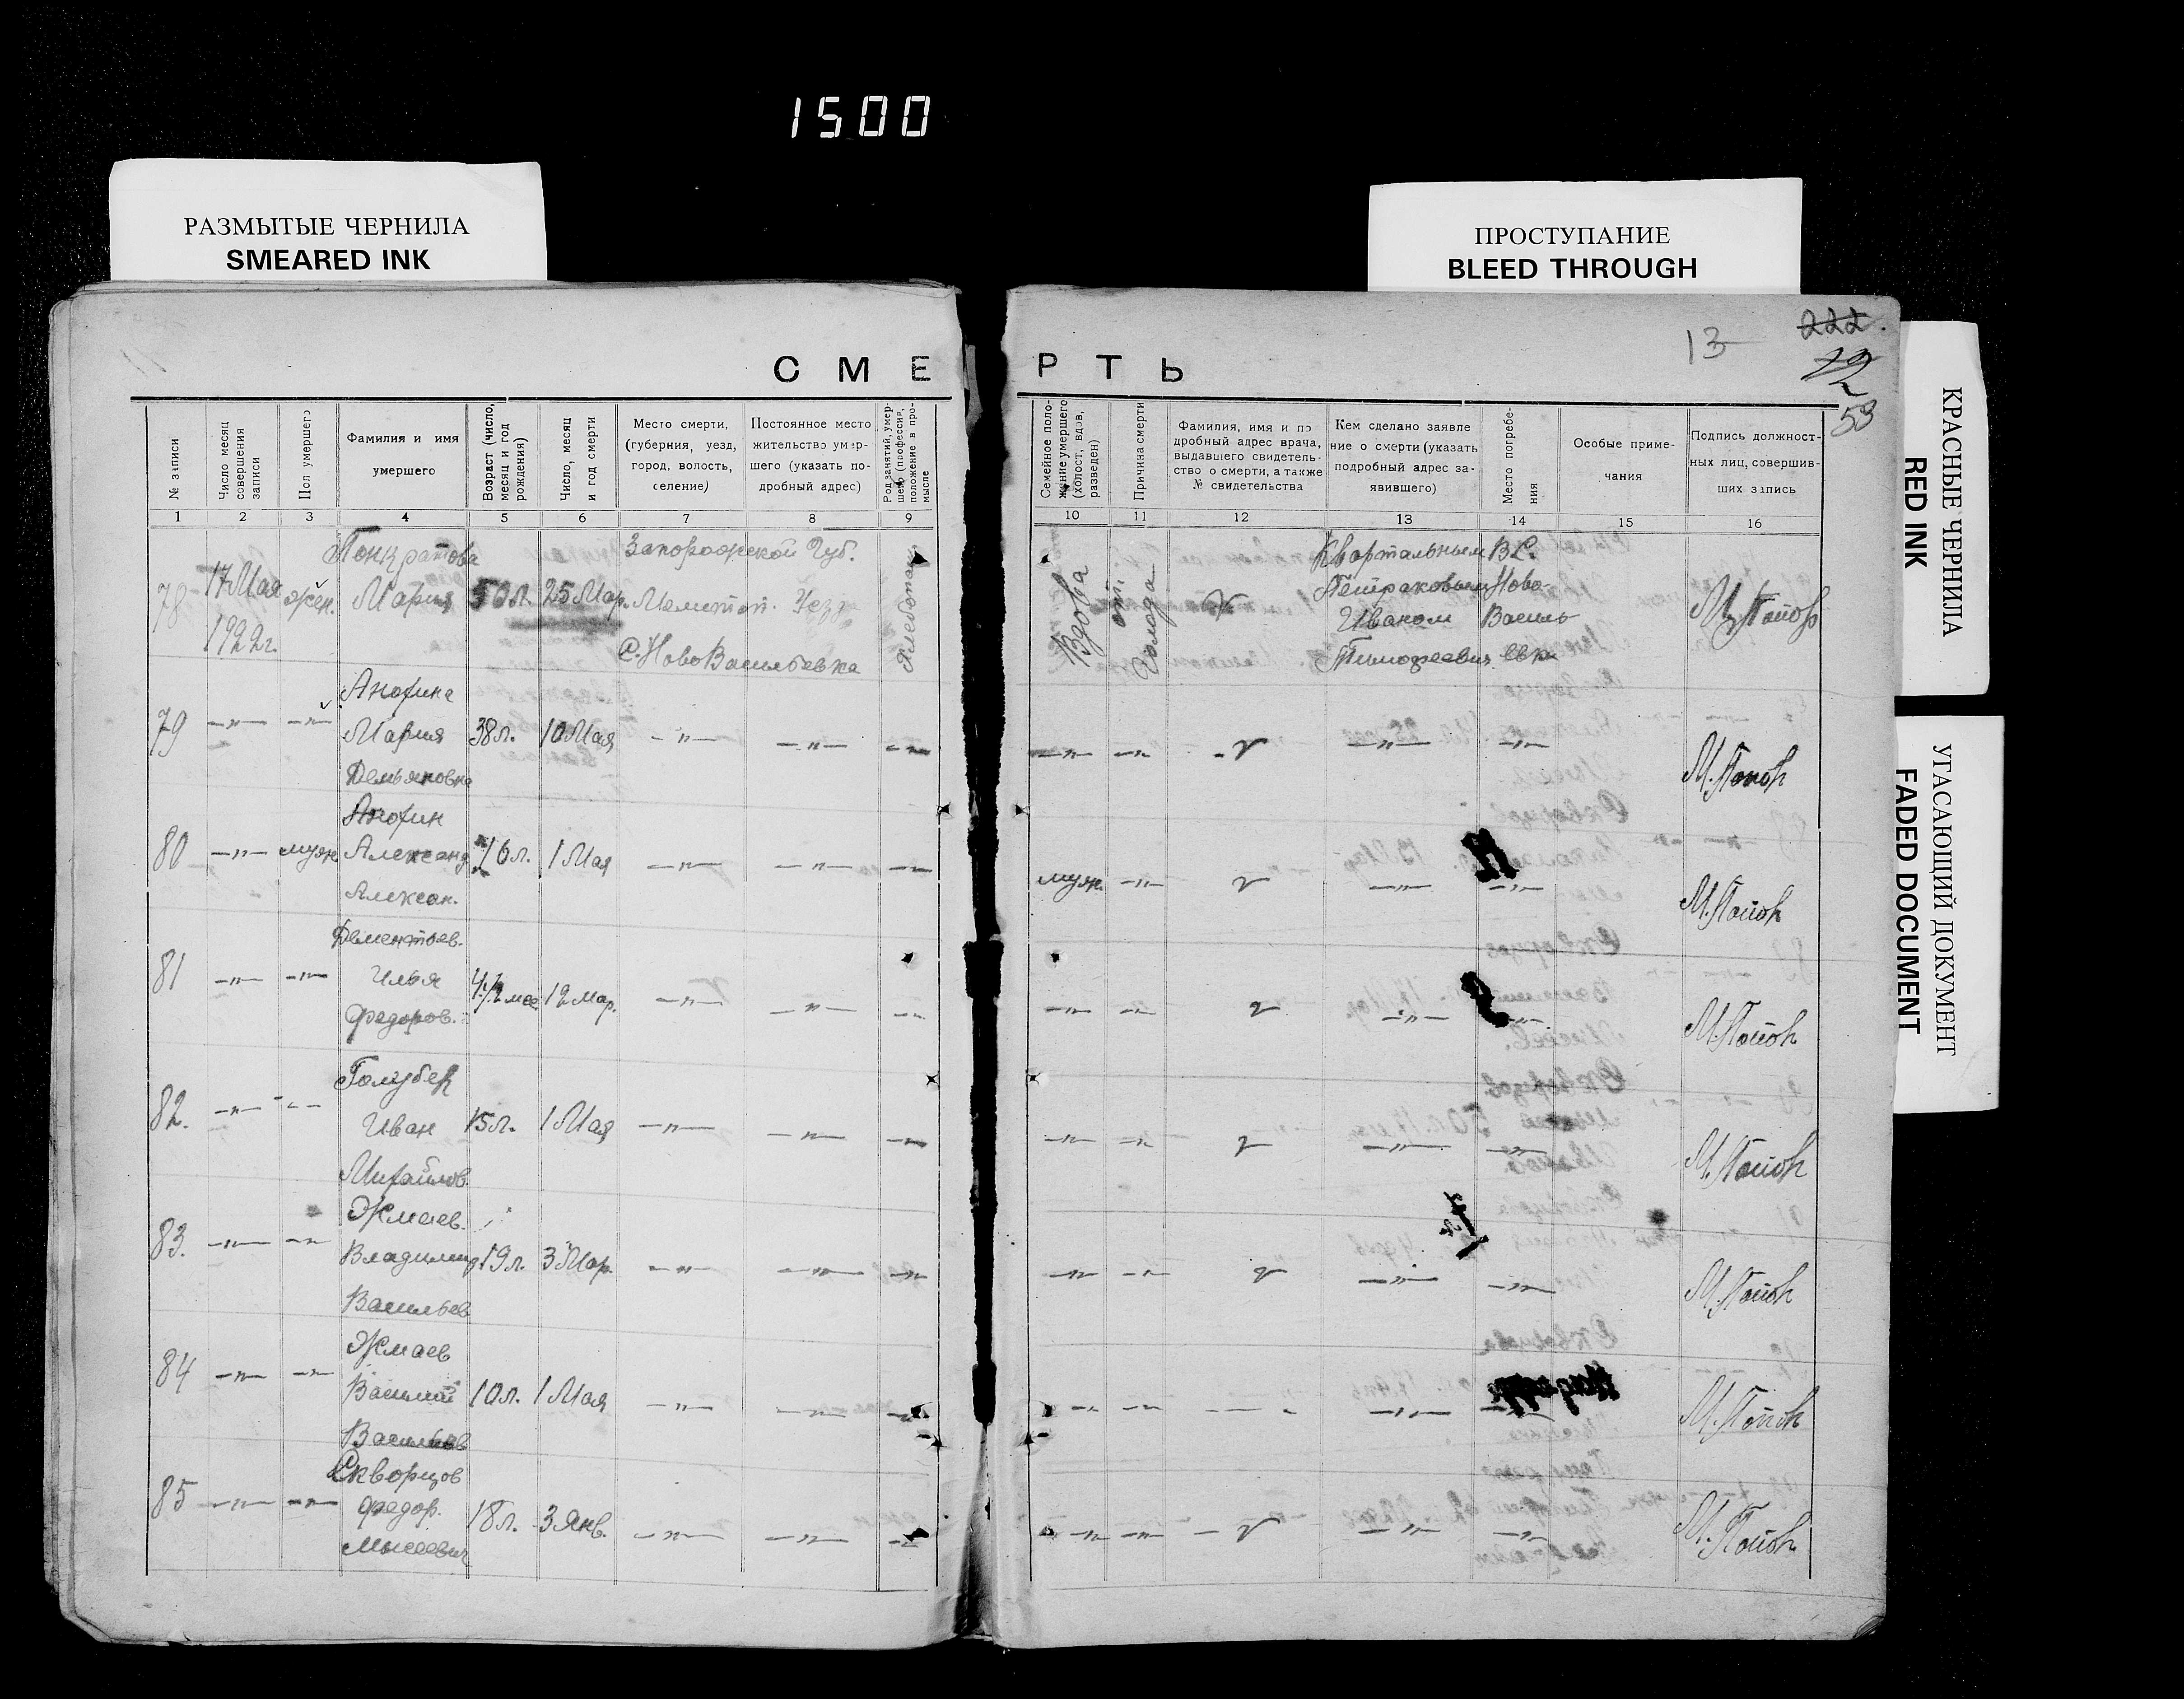 1500
РАЗМЫТЫЕ ЧЕРНИЛА
SMEARED INK
ПРОСТУПАНИЕ
BLEED THROUGH
КРАСНЫЕ ЧЕРНИЛА
RED INK
УГАСАЮЩИЙ ДОКУМЕНТ
FADED DOCUMENT
13
222.
53
СМЕРТЬ
№ записи
Число месяц
совершения
записи
Пол умершего
Фамилия и имя
умершего
Возраст (число,
месяц и год
рождения)
Число, месяц
и год смерти
Место смерти,
(губерния, уезд,
город, волость,
селение)
Постоянное место
жительство умер-
шего (указать по-
дробный адрес)
Род занятий, умер-
шего (профессия,
положение в про-
мысле
Семейное поло-
жение умершего
(холост, вдов,
разведен)
Причина смерти
Фамилия, имя и по
дробный адрес врача,
выдавшего свидетель-
ство о смерти, а также
№ свидетельства
Кем сделано заявле
ние о смерти (указать
подробный адрес за-
явившего)
Место погребе-
ния
Особые приме-
чания
Подпись должност-
ных лиц, совершив-
ших запись
1 2 3 4 5 6 7 8 9 10 11 12 13 14 15 16
78 17 Мая 1922г. жен.
Панкратова
Мария
50 л. 25 Мар.
Запорожской Губ.
Мелитоп. Уезд.
С. Ново Васильевка
Вдова
от
голода
Квартальным
Петраковым
Иваном
Тимофеевич
В С.
Ново-
Василь
евк
М. Попов
79 —"— —"—
Анофина
Мария
Демьяновна
38 л. 10 Мая —"— —"— —"— —"— —"— —"— —"—
М. Попов
80 —"— муж
Анофин
Александ
Алексан.
16 л. 1 Мая —"— —"— —"— муж. —"— —"— —"—
М. Попов
81 —"— —"—
Дементьев.
Илья
Федоров.
4 1/2 мес 12 мар. —"— —"— —"— —"— —"— —"— —"—
М. Попов
82. —"— —"—
Голубев
Иван
Михайлов.
15 л. 1 Мая —"— —"— —"— —"— —"— —"— —"—
М. Попов
83. —"— —"—
Жмаев.
Владимир
Васильев
19 л. 3 Мар. —"— —"— —"— —"— —"— —"— —"—
М. Попов
84 —"— —"—
Жмаев
Василий
Васильев
10 л. 1 Мая —"— —"— —"— —"— —"— —"— —"—
М. Попов
85 —"— —"—
Скворцов
Федор.
Мысеевич
18 л. 3 Янв. —"— —"— —"— —"— —"— —"— —"—
М. Попов